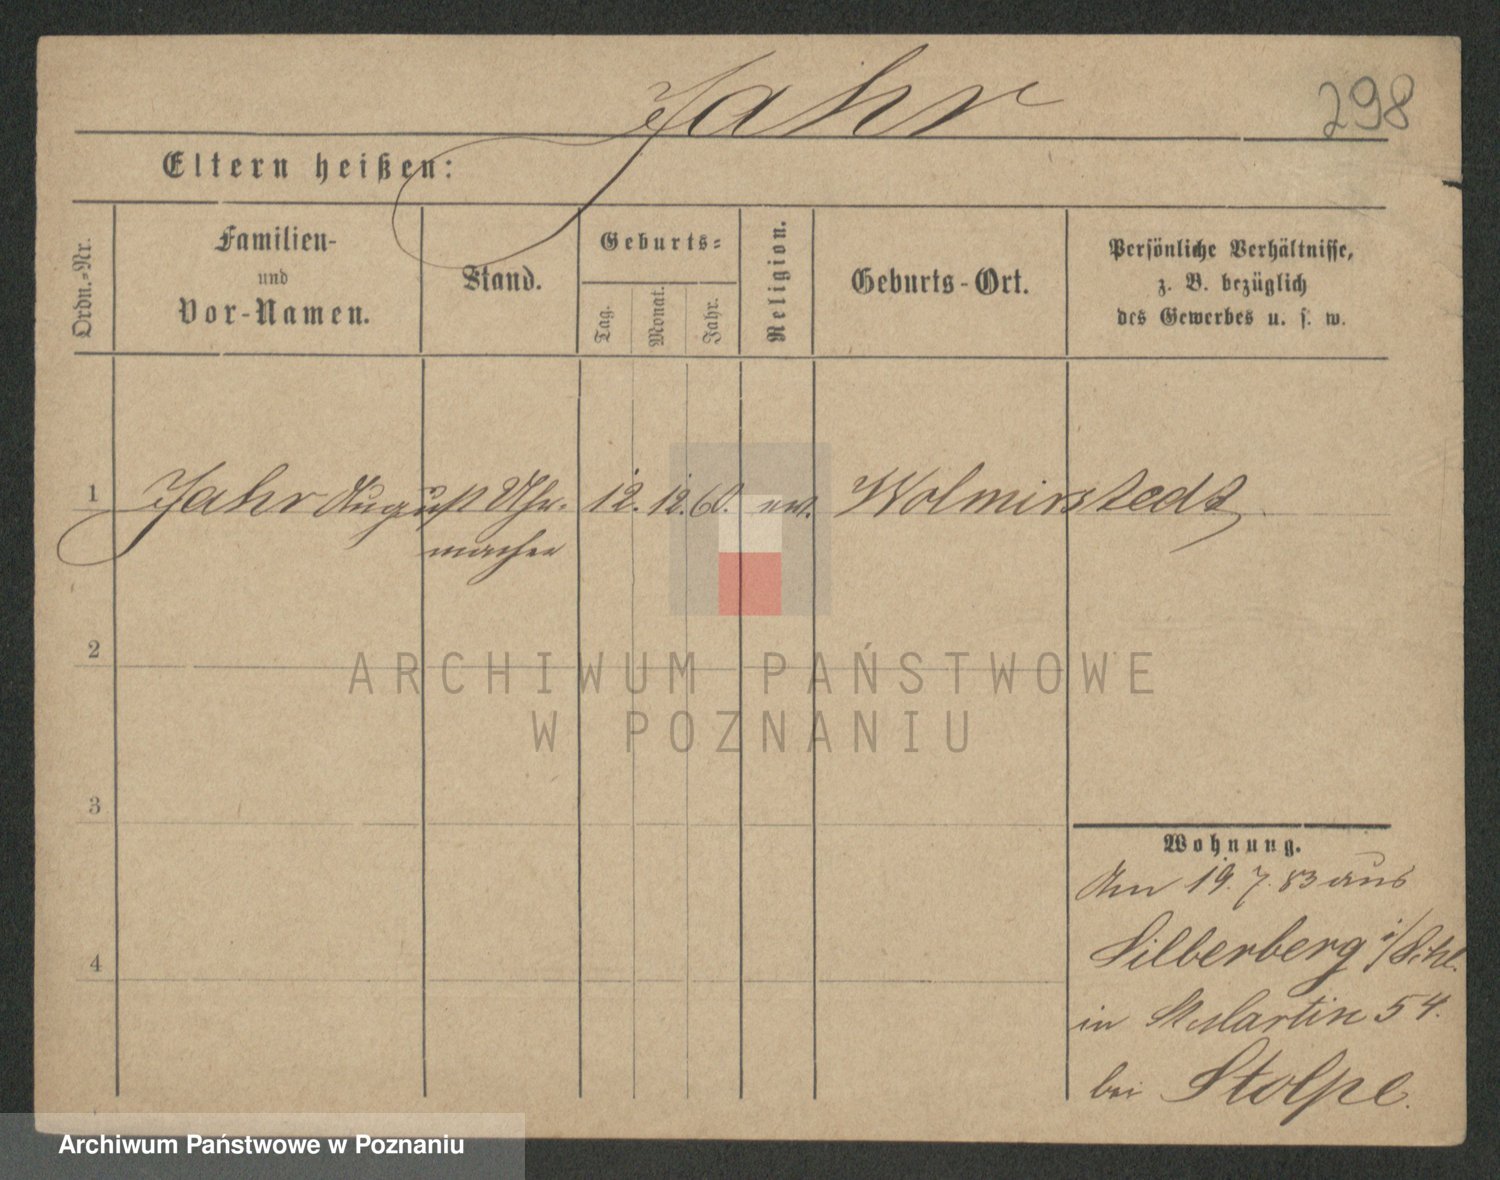 Jahr
298
Eltern heißen:
Ordn.-Nr.
Familien-
und
Vor-Namen.
Stand.
Geburts-
Tag.
Monat.
Jahr.
Religion.
Geburts-Ort.
Persönliche Verhältnisse,
z. B. bezüglich
des Gewerbes u. s. w.
1 Jahr August Uhr- 12. 12. 60. ev. Wolmirstedt
macher
2
ARCHIWUM PAŃSTWOWE
W POZNANIU
3
Wohnung.
Am 19. 7. 83 aus
Silberberg i/Schl.
4
in St Martin 54.
bei Stolpe.
Archiwum Państwowe w Poznaniu